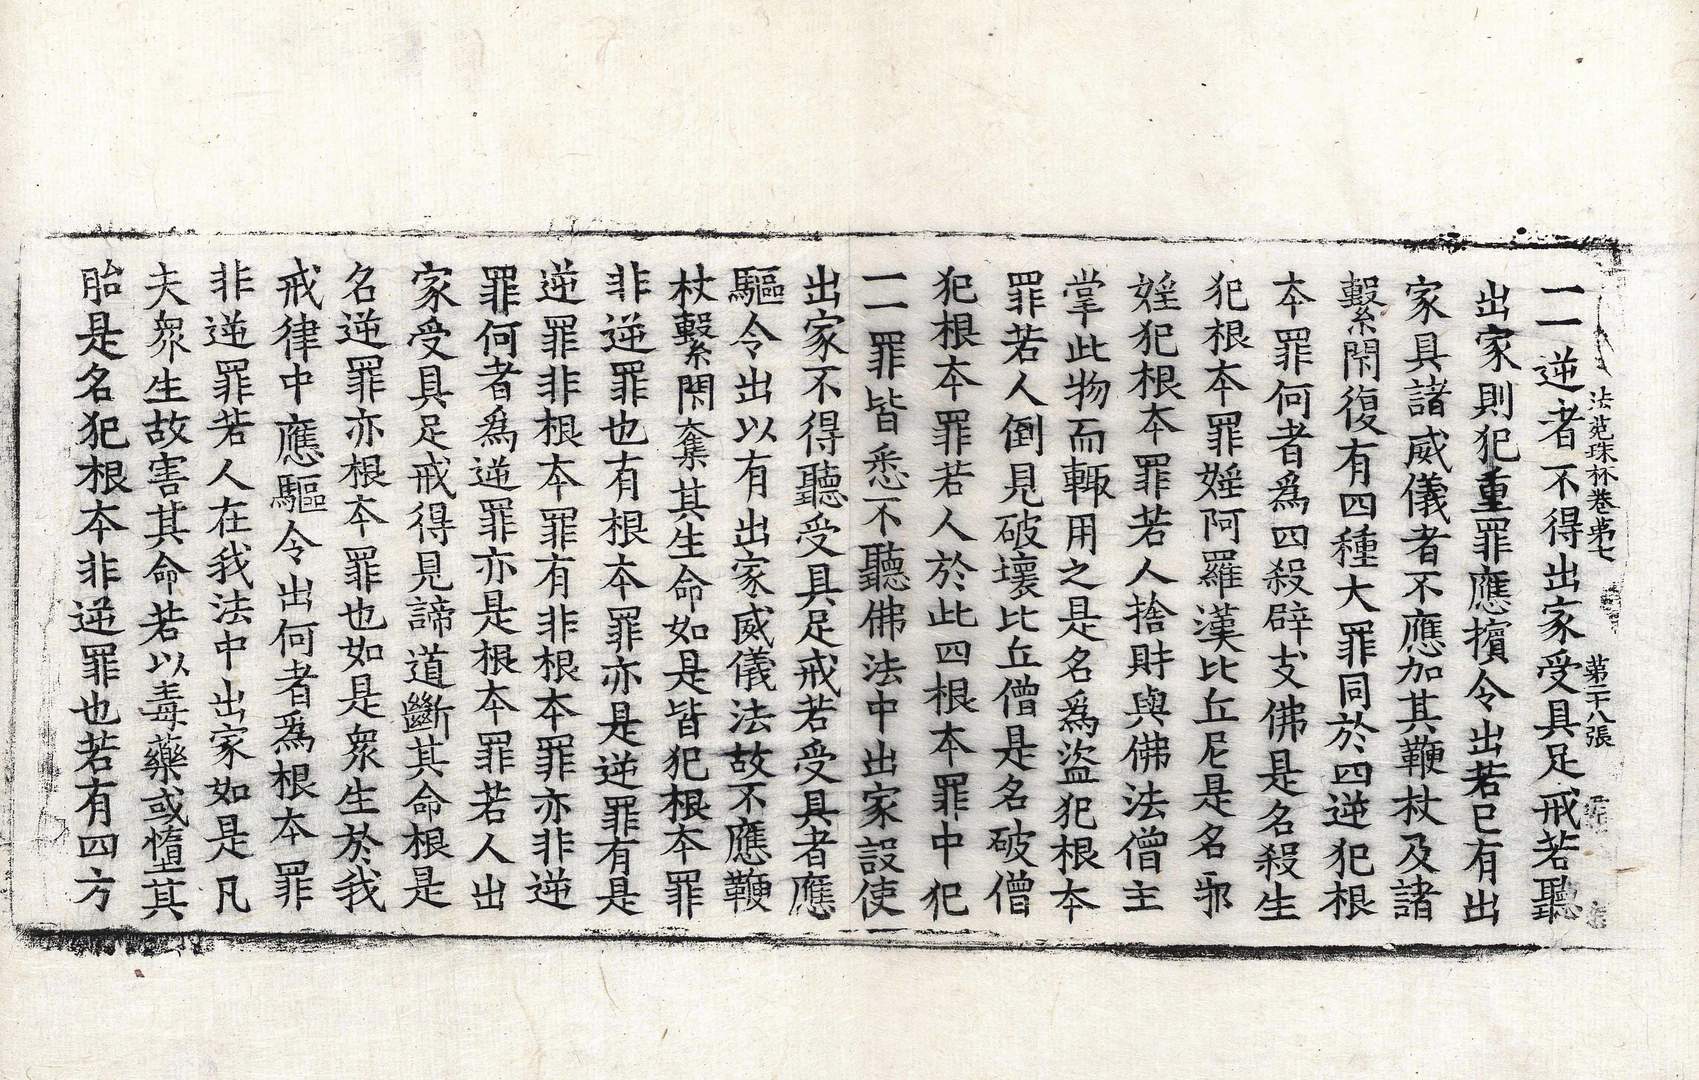 法苑珠林卷第七 第二十八張
一一逆者不得出家受具足戒若聽
出家則犯重罪應擯令出若已有出
家具諸威儀者不應加其鞭杖及諸
繫閇復有四種大罪同於四逆犯根
本罪何者爲四殺辟支佛是名殺生
犯根本罪婬阿羅漢比丘尼是名邪
婬犯根本罪若人捨財與佛法僧主
掌此物而輒用之是名爲盜犯根本
罪若人倒見破壞比丘僧是名破僧
犯根本罪若人於此四根本罪中犯
一一罪皆悉不聽佛法中出家設使
出家不得聽受具足戒若受具者應
驅令出以有出家威儀法故不應鞭
杖繫閇奪其生命如是皆犯根本罪
非逆罪也有根本罪亦是逆罪有是
逆罪非根本罪有非根本罪亦非逆
罪何者爲逆罪亦是根本罪若人出
家受具足戒得見諦道斷其命根是
名逆罪亦根本罪也如是衆生於我
戒律中應驅令出何者爲根本罪
非逆罪若人在我法中出家如是凡
夫衆生故害其命若以毒藥或墮其
胎是名犯根本非逆罪也若有四方